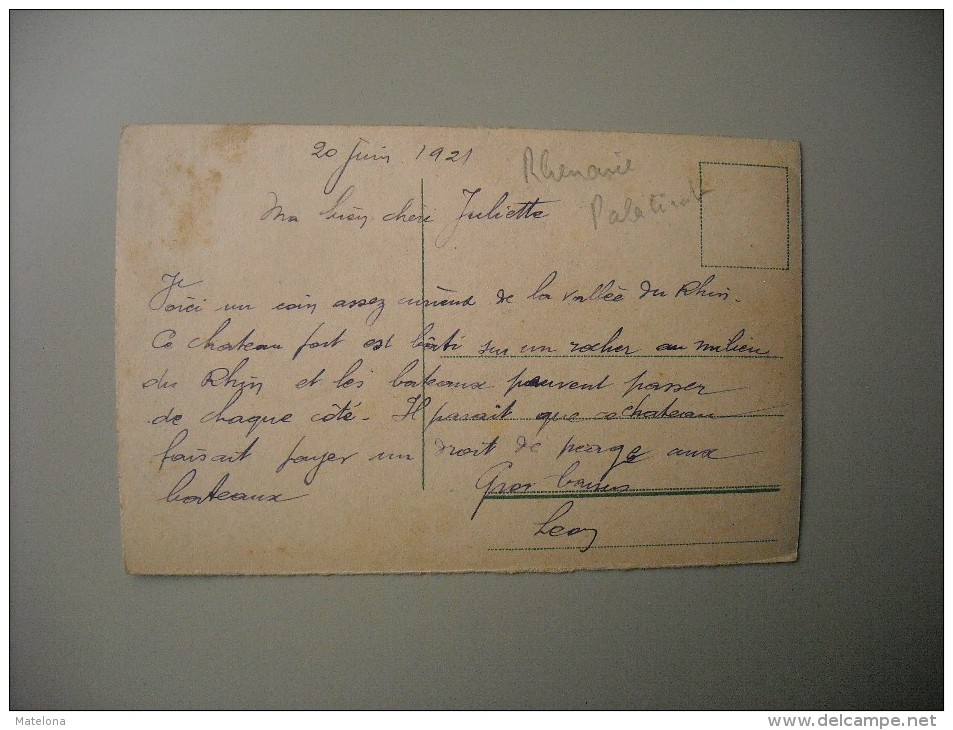 20 Juin 1921
Rhenanie
Palatinat
Ma bien chère Juliette
Voici un coin assez curieux de la vallée du Rhin.
Ce chateau fort est bâti sur un rocher au milieu
du Rhin et les bateaux peuvent passer
de chaque côté. Il parait que ce chateau
faisait payer un droit de péage aux
bateaux
Gros baisers
Leon
Matelona
http://www.delcampe.net